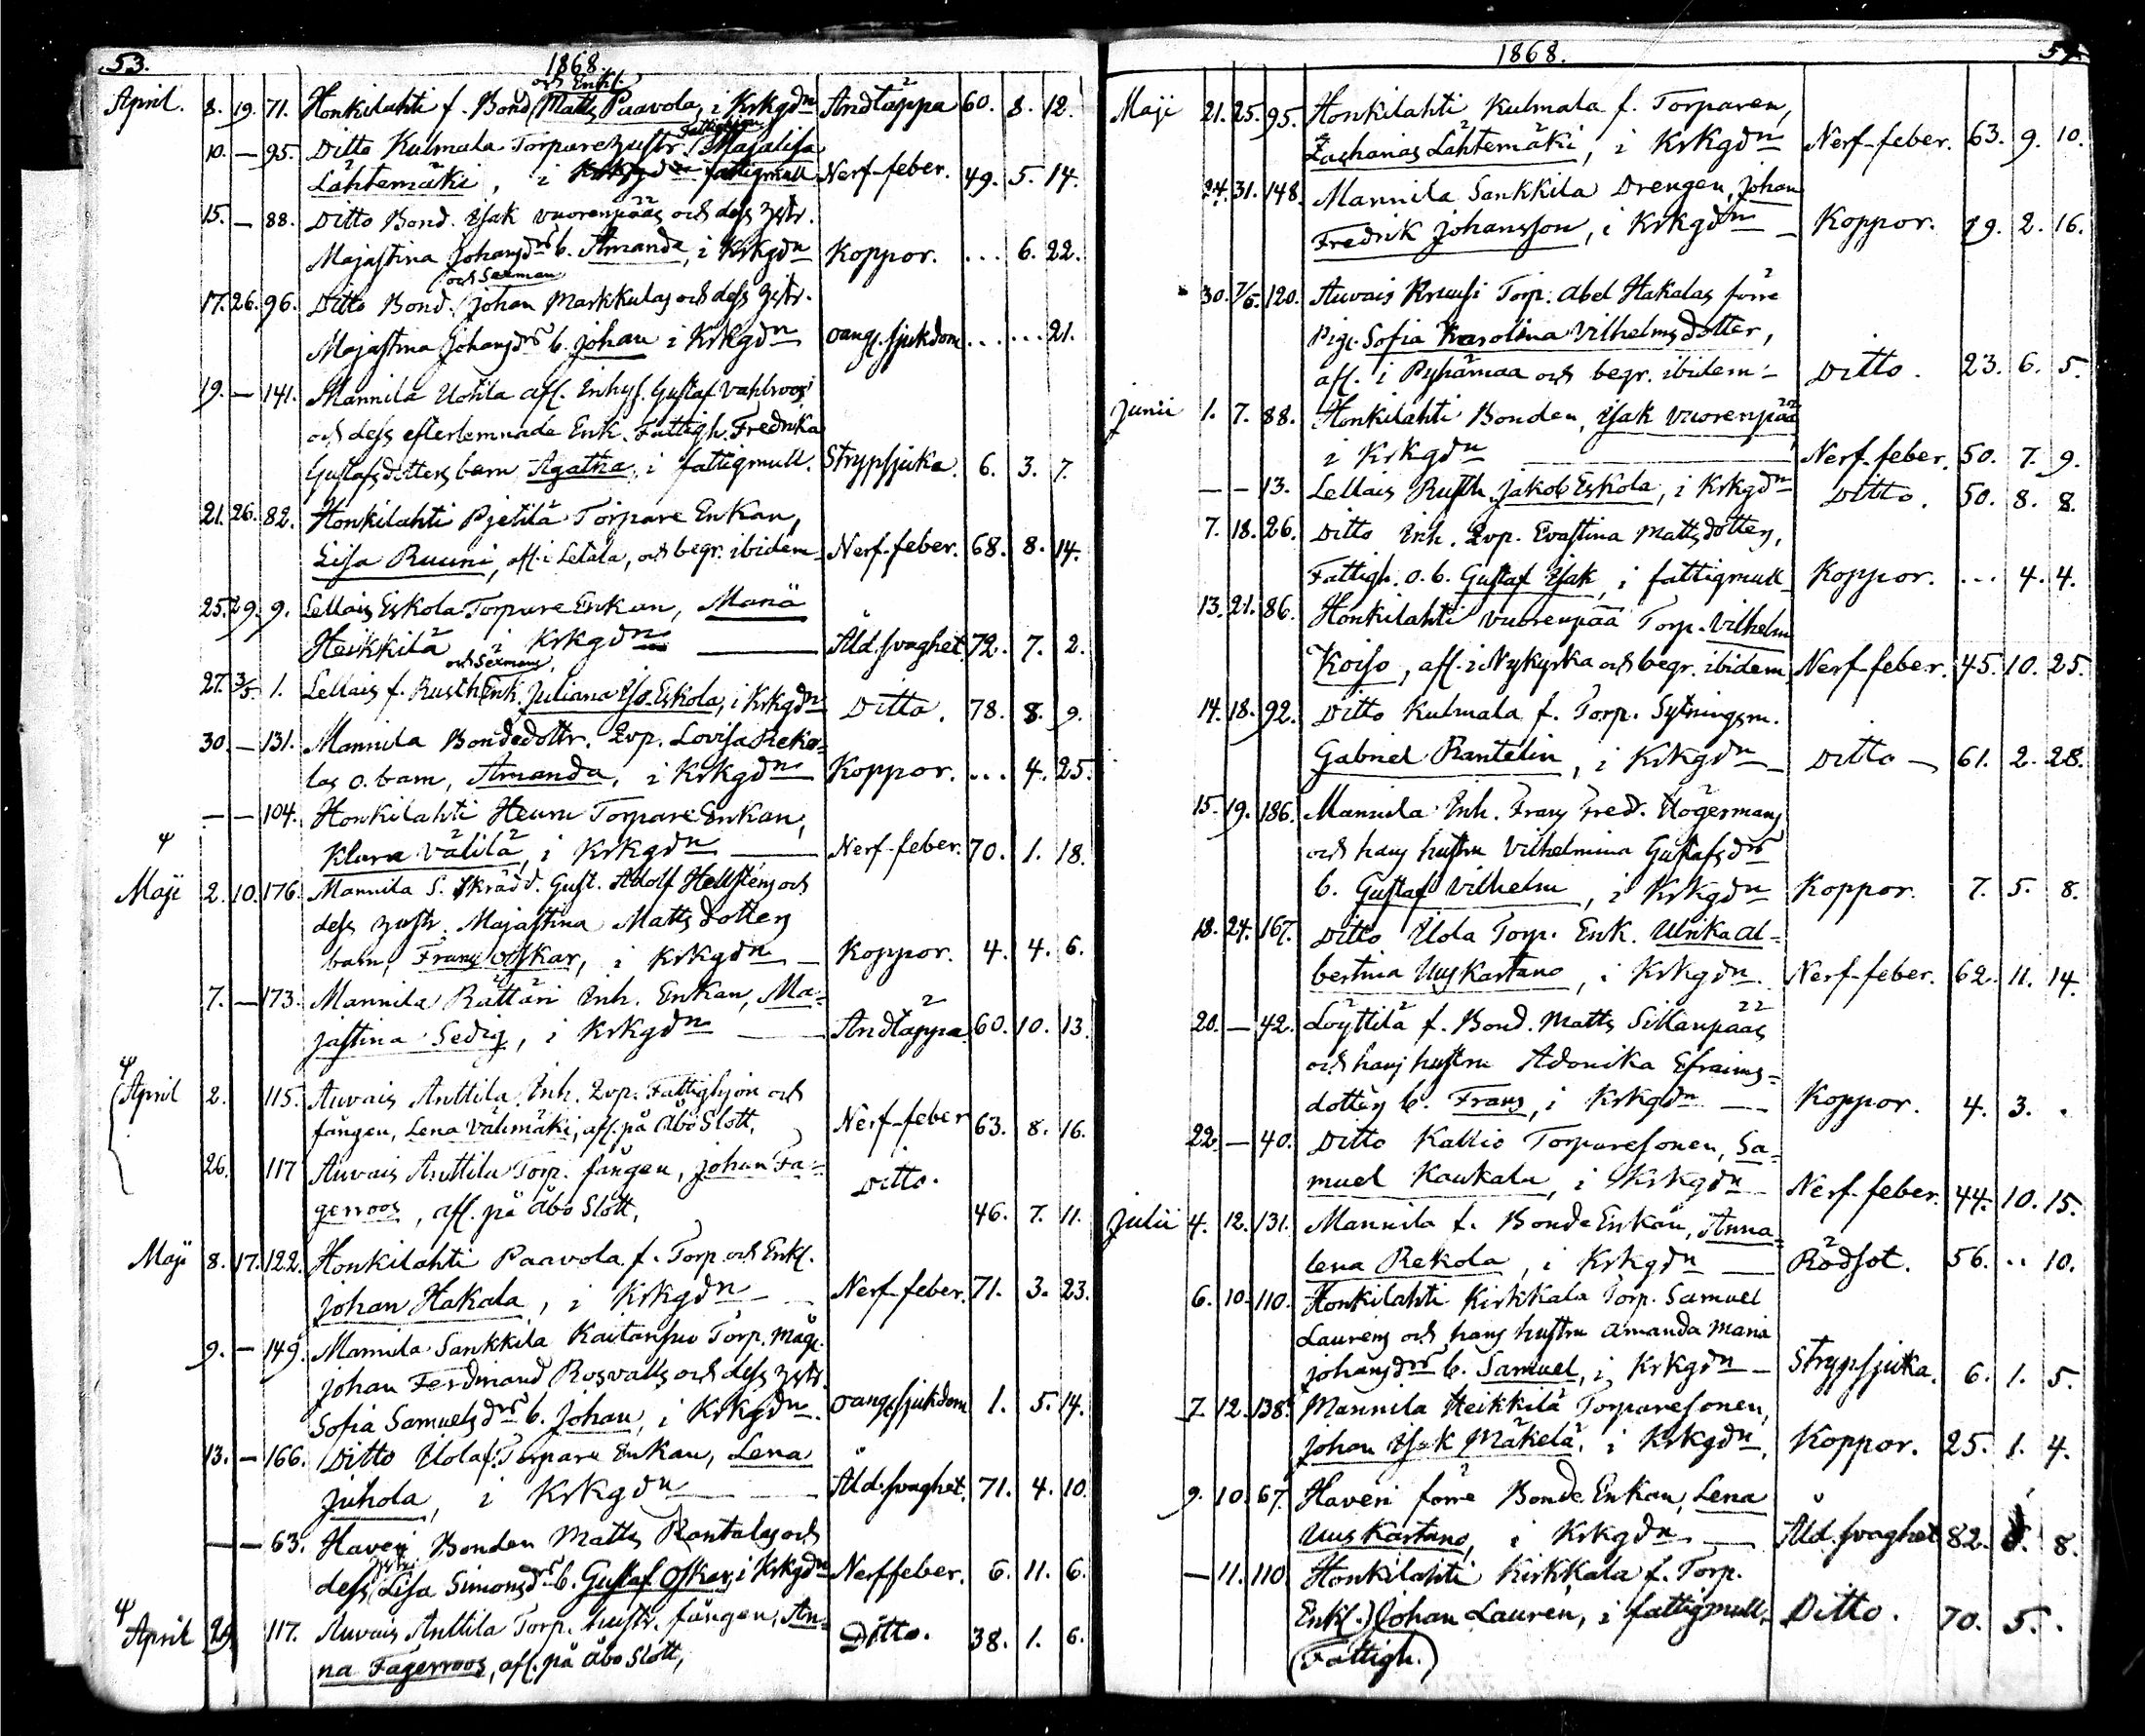 53.
1868.
och Enkl.
April. 8. 19. 71. Honkilahti f. Bond. Matts Paavola, i Krkgdn Andtäppa 60. 8. 12.
Fattighjon
10. — 95. Ditto Kulmala Torpare hustr. Majalisa
Lähtemäki, i fattigmull Nerf-feber. 49. 5. 14.
15. — 88. Ditto Bond. Isak Vuorenpääs och dess hstr.
Majastina Johansdrs b. Amanda, i Krkgdn Koppor. ... 6. 22.
och Sexman
17. 26. 96. Ditto Bond. Johan Markkulas och dess hstr.
Majastina Johansdrs b. Johan i Krkgdn oang. sjukdom ... ... 21.
19. — 141. Mannila Uotila afl. Inhys. Gustaf Vahlroos
och dess efterlemnade Enk. Fattigh. Fredrika
Gustafsdotters barn Agatha, i fattigmull. Strypsjuka. 6. 3. 7.
21. 26. 82. Honkilahti Pjetilä Torpare Enkan,
Lisa Ruuni, afl. i Letala, och begr. ibidem Nerf-feber. 68. 8. 14.
25. 29. 9. Lellais Eskola Torpare Enkan, Maria
Heikkilä i Krkgdn Åld. svaghet. 72. 7. 2.
och Sexmans
27. 3/5. 1. Lellais f. Rusth. Enk. Juliana Eskola, i Krkgdn Ditto. 78. 8. 9.
30. — 131. Mannila Bondedottr. Qvp. Lovisa Reko-
las o. barn, Amanda, i Krkgdn Koppor. ... 4. 25.
— — 104. Honkilahti Heuru Torpare Enkan,
Klara Välilä, i Krkgdn Nerf-feber. 70. 1. 18.
Maji 2. 10. 176. Mannila S. Skrädd. Gust. Adolf Hellstens och
dess hustr. Majastina Mattsdotters
barn, Frans Oskar, i Krkgdn Koppor. 4. 4. 6.
7. — 173. Mannila Rättäri Inh. Enkan, Ma-
jastina Sedig, i Krkgdn Andtäppa 60. 10. 13.
April 2. 115. Auvais Anttila Inh. Qvp. Fattighjon och
fången, Lena Välimäki, afl. på Åbo Slott, Nerf-feber 63. 8. 16.
26. 117 Auvais Anttila Torp. fången, Johan Fa-
gerroos, afl. på Åbo Slott, Ditto. 46. 7. 11.
Maji 8. 17. 122. Honkilahti Paavola f. Torp. och Enkl.
Johan Hakala, i Krkgdn Nerf-feber. 71. 3. 23.
9. — 149. Mannila Sankkila Kaitansuo Torp. Måg.
Johan Ferdinand Rosvalls och dess hstr.
Sofia Samuelsdrs b. Johan, i Krkgdn. oang. sjukdom 1. 5. 14.
13. — 166. Ditto Uola f. Torpare Enkan, Lena
Juhola, i Krkgdn Åld. svaghet. 71. 4. 10.
— — 63. Haveri Bonden Matts Rantalas och
hstru
dess Lisa Simonsdrs b. Gustaf Oskar, i Krkgdn Nerffeber. 6. 11. 6.
April 29 117. Auvais Anttila Torp. hustr. fången, An-
na Fagerroos, afl. på Åbo Slott, Ditto. 38. 1. 6.
54.
1868.
Maji 21. 25. 95. Honkilahti Kulmala f. Torparen,
Zacharias Lähtemäki, i Krkgdn Nerf-feber. 63. 9. 10.
24. 31. 148. Mannila Sankkila Drengen, Johan
Fredrik Johansson, i Krkgdn Koppor. 19. 2. 16.
30. 7/6. 120. Auvais Knuusi Torp. Abel Hakalas förre
Pig. Sofia Karolina Vilhelmsdotter,
afl. i Pyhämaa och begr. ibidem Ditto. 23. 6. 5.
Junii 1. 7. 88. Honkilahti Bonden, Isak Vuorenpää
i Krkgdn Nerf-feber. 50. 7. 9.
— — 13. Lellais Rusth. Jakob Eskola, i Krkgdn Ditto. 50. 8. 8.
7. 18. 26. Ditto Inh. Qvp. Evastina Mattsdotters,
Fattigh. o. b. Gustaf Isak, i fattigmull Koppor. ... 4. 4.
13. 21. 86. Honkilahti Vuorenpää Torp. Vilhelm
Koiso, afl. i Nykyrka och begr. ibidem, Nerf-feber. 45. 10. 25.
14. 18. 92. Ditto Kulmala f. Torp. Sytningsm.
Gabriel Rantelin, i Krkgdn Ditto 61. 2. 28.
15. 19. 186. Mannila Inh. Frans Fred. Högermans
och hans hustru Vilhelmina Gustafsdrs
b. Gustaf Vilhelm, i Krkgdn Koppor. 7. 5. 8.
18. 24. 167. Ditto Uola Torp. Enk. Ulrika Al-
bertina Uuskartano, i Krkgdn. Nerf-feber. 62. 11. 14.
20. — 42. Löyttilä f. Bond. Matts Sillanpääs
och hans hustru Adonika Efraims-
dotters b. Frans, i Krkgdn Koppor. 4. 3. .
22. — 40. Ditto Kallio Torparesonen, Sa-
muel Kaukala, i Krkgdn Nerf-feber. 44. 10. 15.
Julii 4. 12. 131. Mannila f. Bonde Enkan, Anna-
lena Rekola, i Krkgdn Rödsot. 56. .. 10.
6. 10. 110. Honkilahti Kirkkala Torp. Samuel
Laurens och hans hustru Amanda Maria
Johansdrs b. Samuel, i Krkgdn Strypsjuka. 6. 1. 5.
7. 12. 138. Mannila Heikkilä Torparesonen,
Johan Isak Mäkelä, i Krkgdn, Koppor. 25. 1. 4.
9. 10. 67. Haveri förre Bonde Enkan, Lena
Uuskartano, i Krkgdn Åld. svaghet 82. 8.
— 11. 110 Honkilahti Kirkkala f. Torp.
Enkl.) Johan Lauren, i fattigmull, Ditto. 70. 5. .
(Fattigh.)